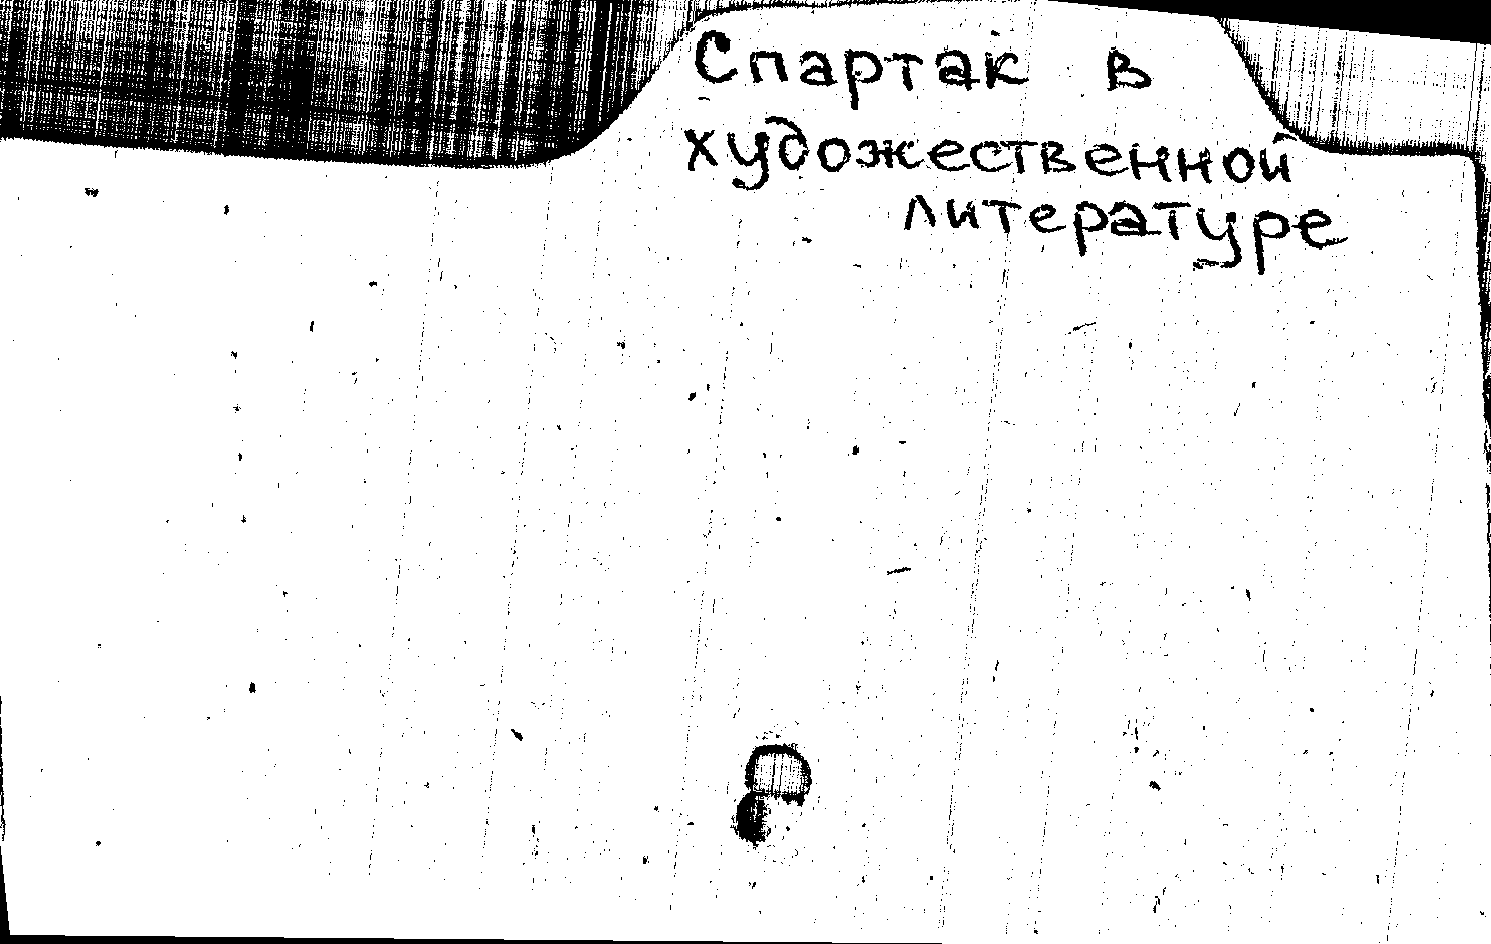 Спартак в
художественной
литературе